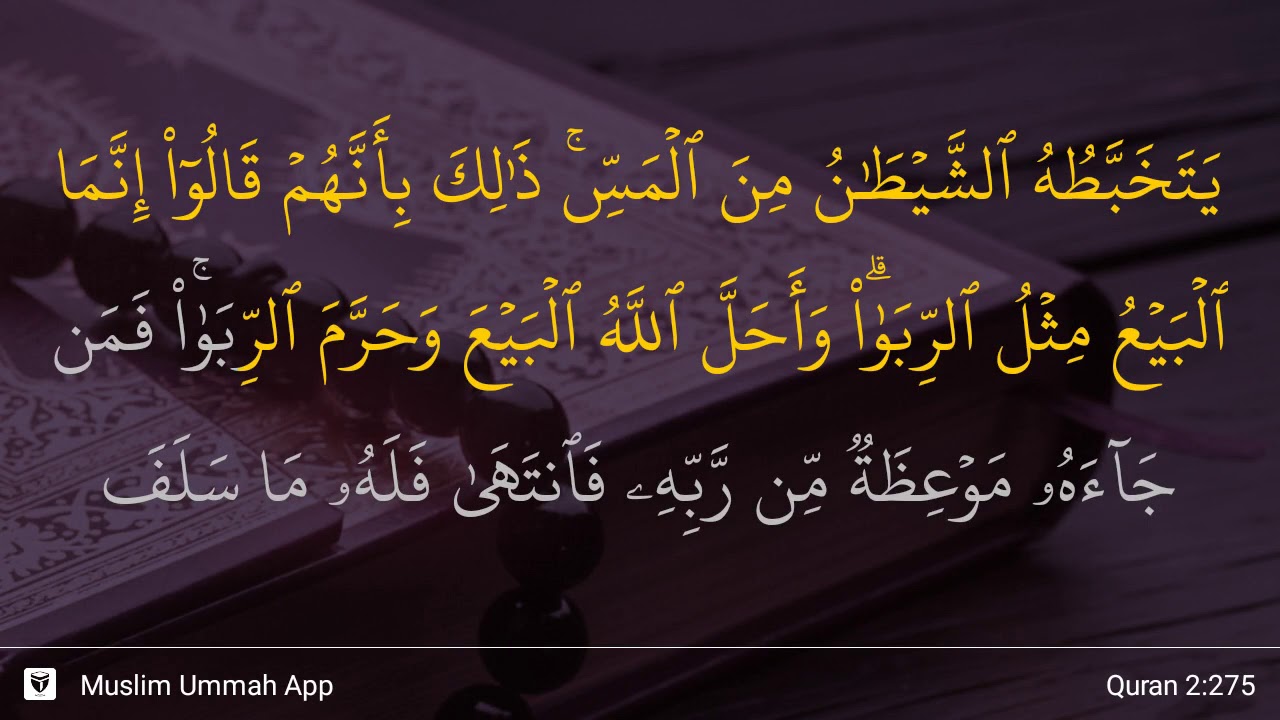 يَتَخَبَّطُهُ ٱلشَّيْطَٰنُ مِنَ ٱلْمَسِّ ۚ ذَٰلِكَ بِأَنَّهُمْ قَالُوٓا۟ إِنَّمَا
ٱلْبَيْعُ مِثْلُ ٱلرِّبَوٰا۟ ۗ وَأَحَلَّ ٱللَّهُ ٱلْبَيْعَ وَحَرَّمَ ٱلرِّبَوٰا۟ ۚ فَمَن
جَآءَهُۥ مَوْعِظَةٌ مِّن رَّبِّهِۦ فَٱنتَهَىٰ فَلَهُۥ مَا سَلَفَ
Muslim Ummah App
Quran 2:275